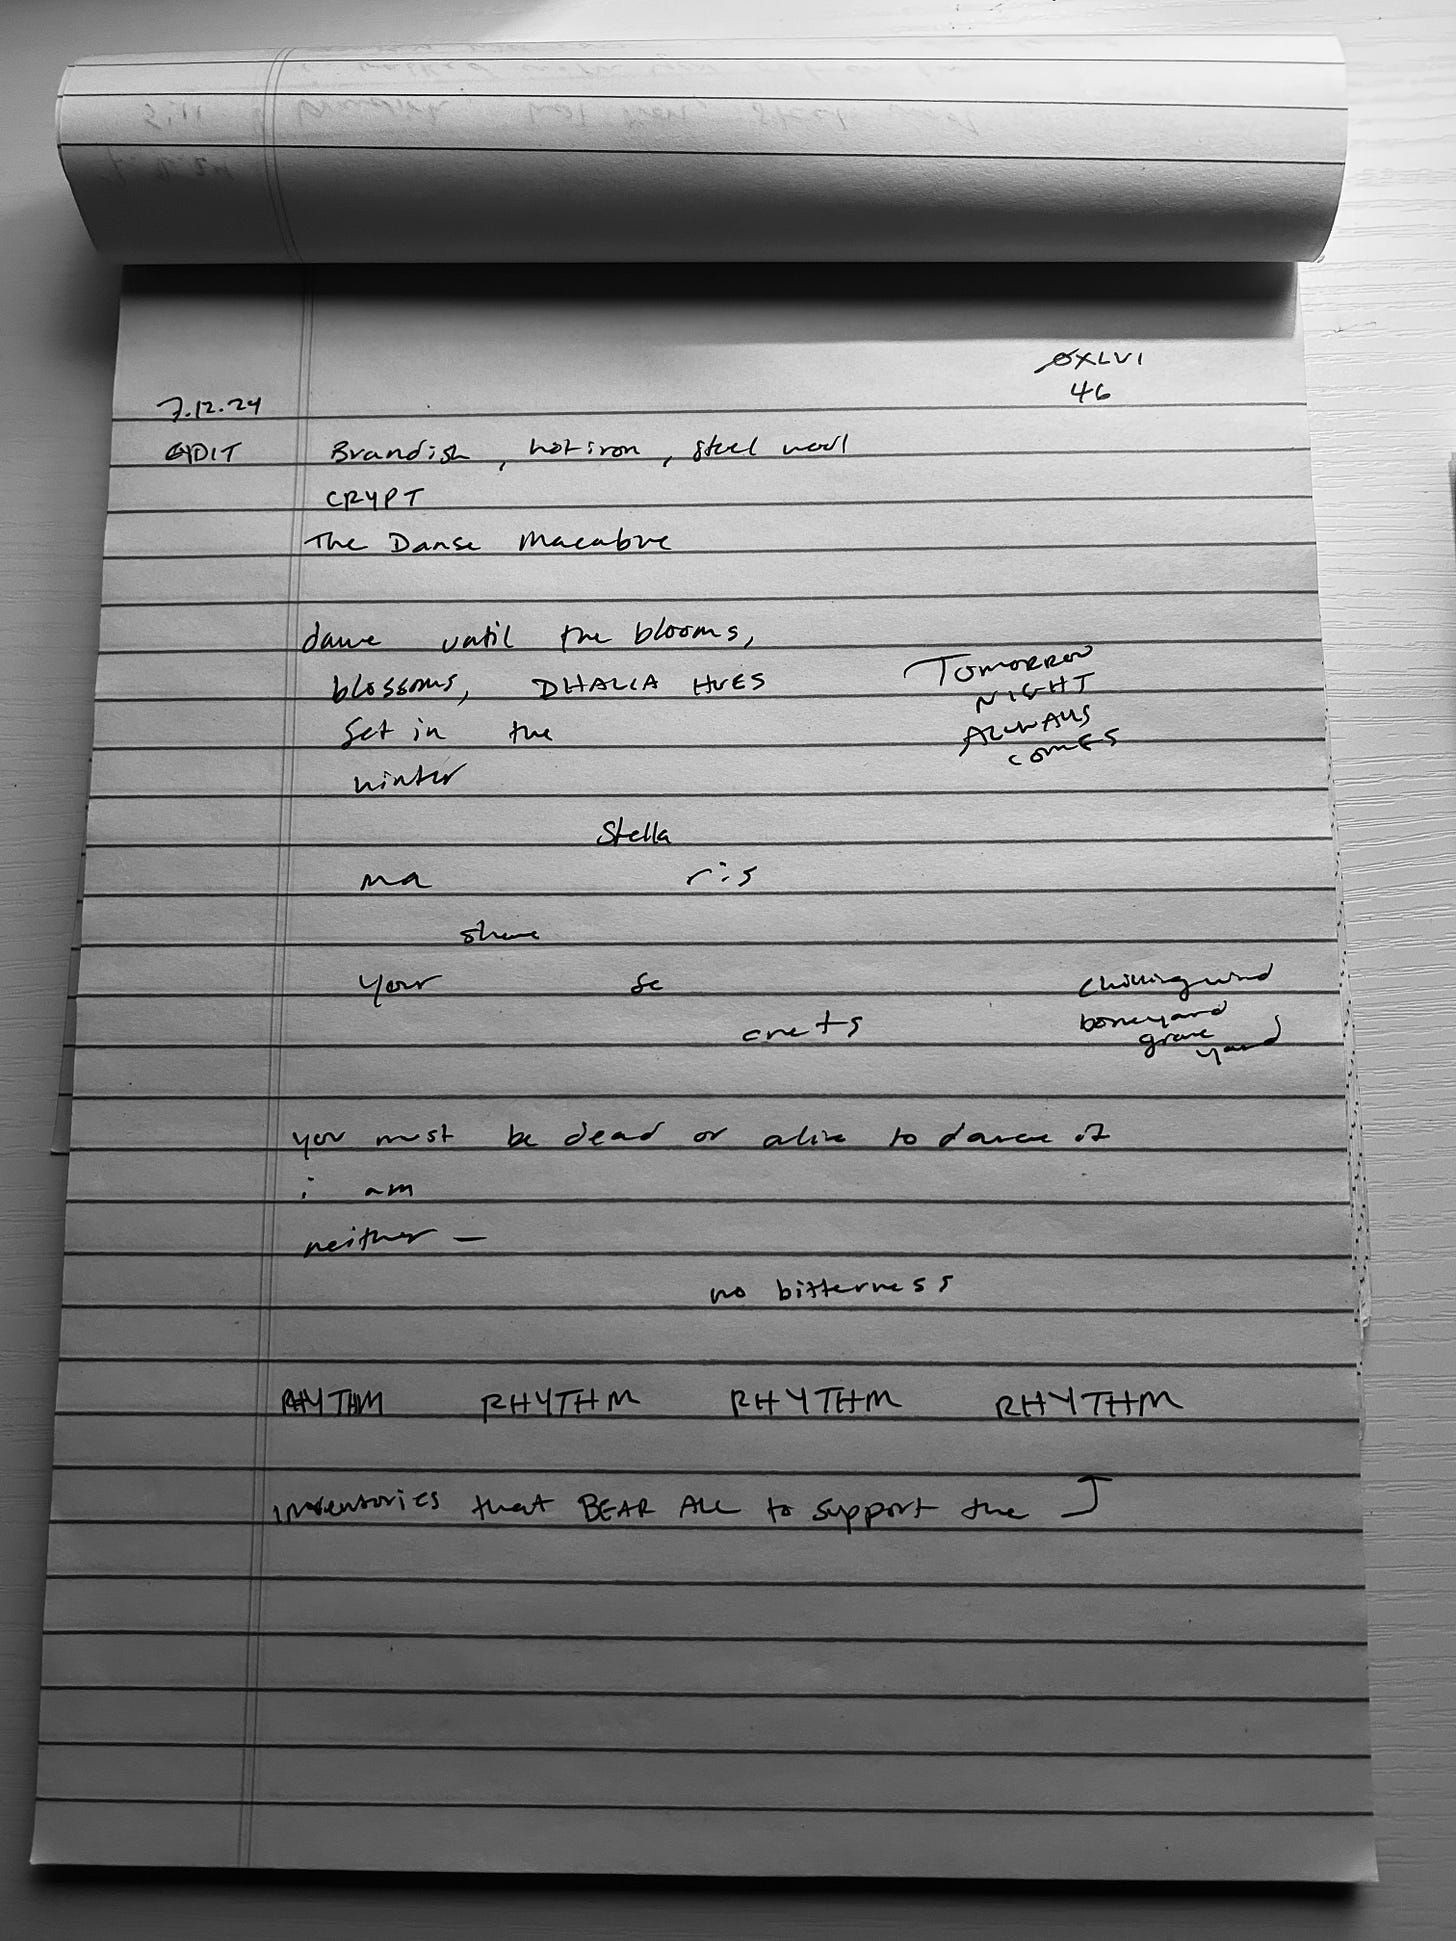 XLVI
46
7.12.24
EDIT Brandish, hot iron, steel wool
CRYPT
The Danse Macabre
dance until the blooms,
blossoms, DHALIA HUES
Set in the
winter
TOMORROW
NIGHT
ALWAYS
COMES
Stella
ma ris
share
your se
crets
chilling wind
boneyard
grave
yard
you must be dead or alive to dance it
i am
neither —
no bitterness
RHYTHM RHYTHM RHYTHM RHYTHM
inventories that BEAR ALL to support the